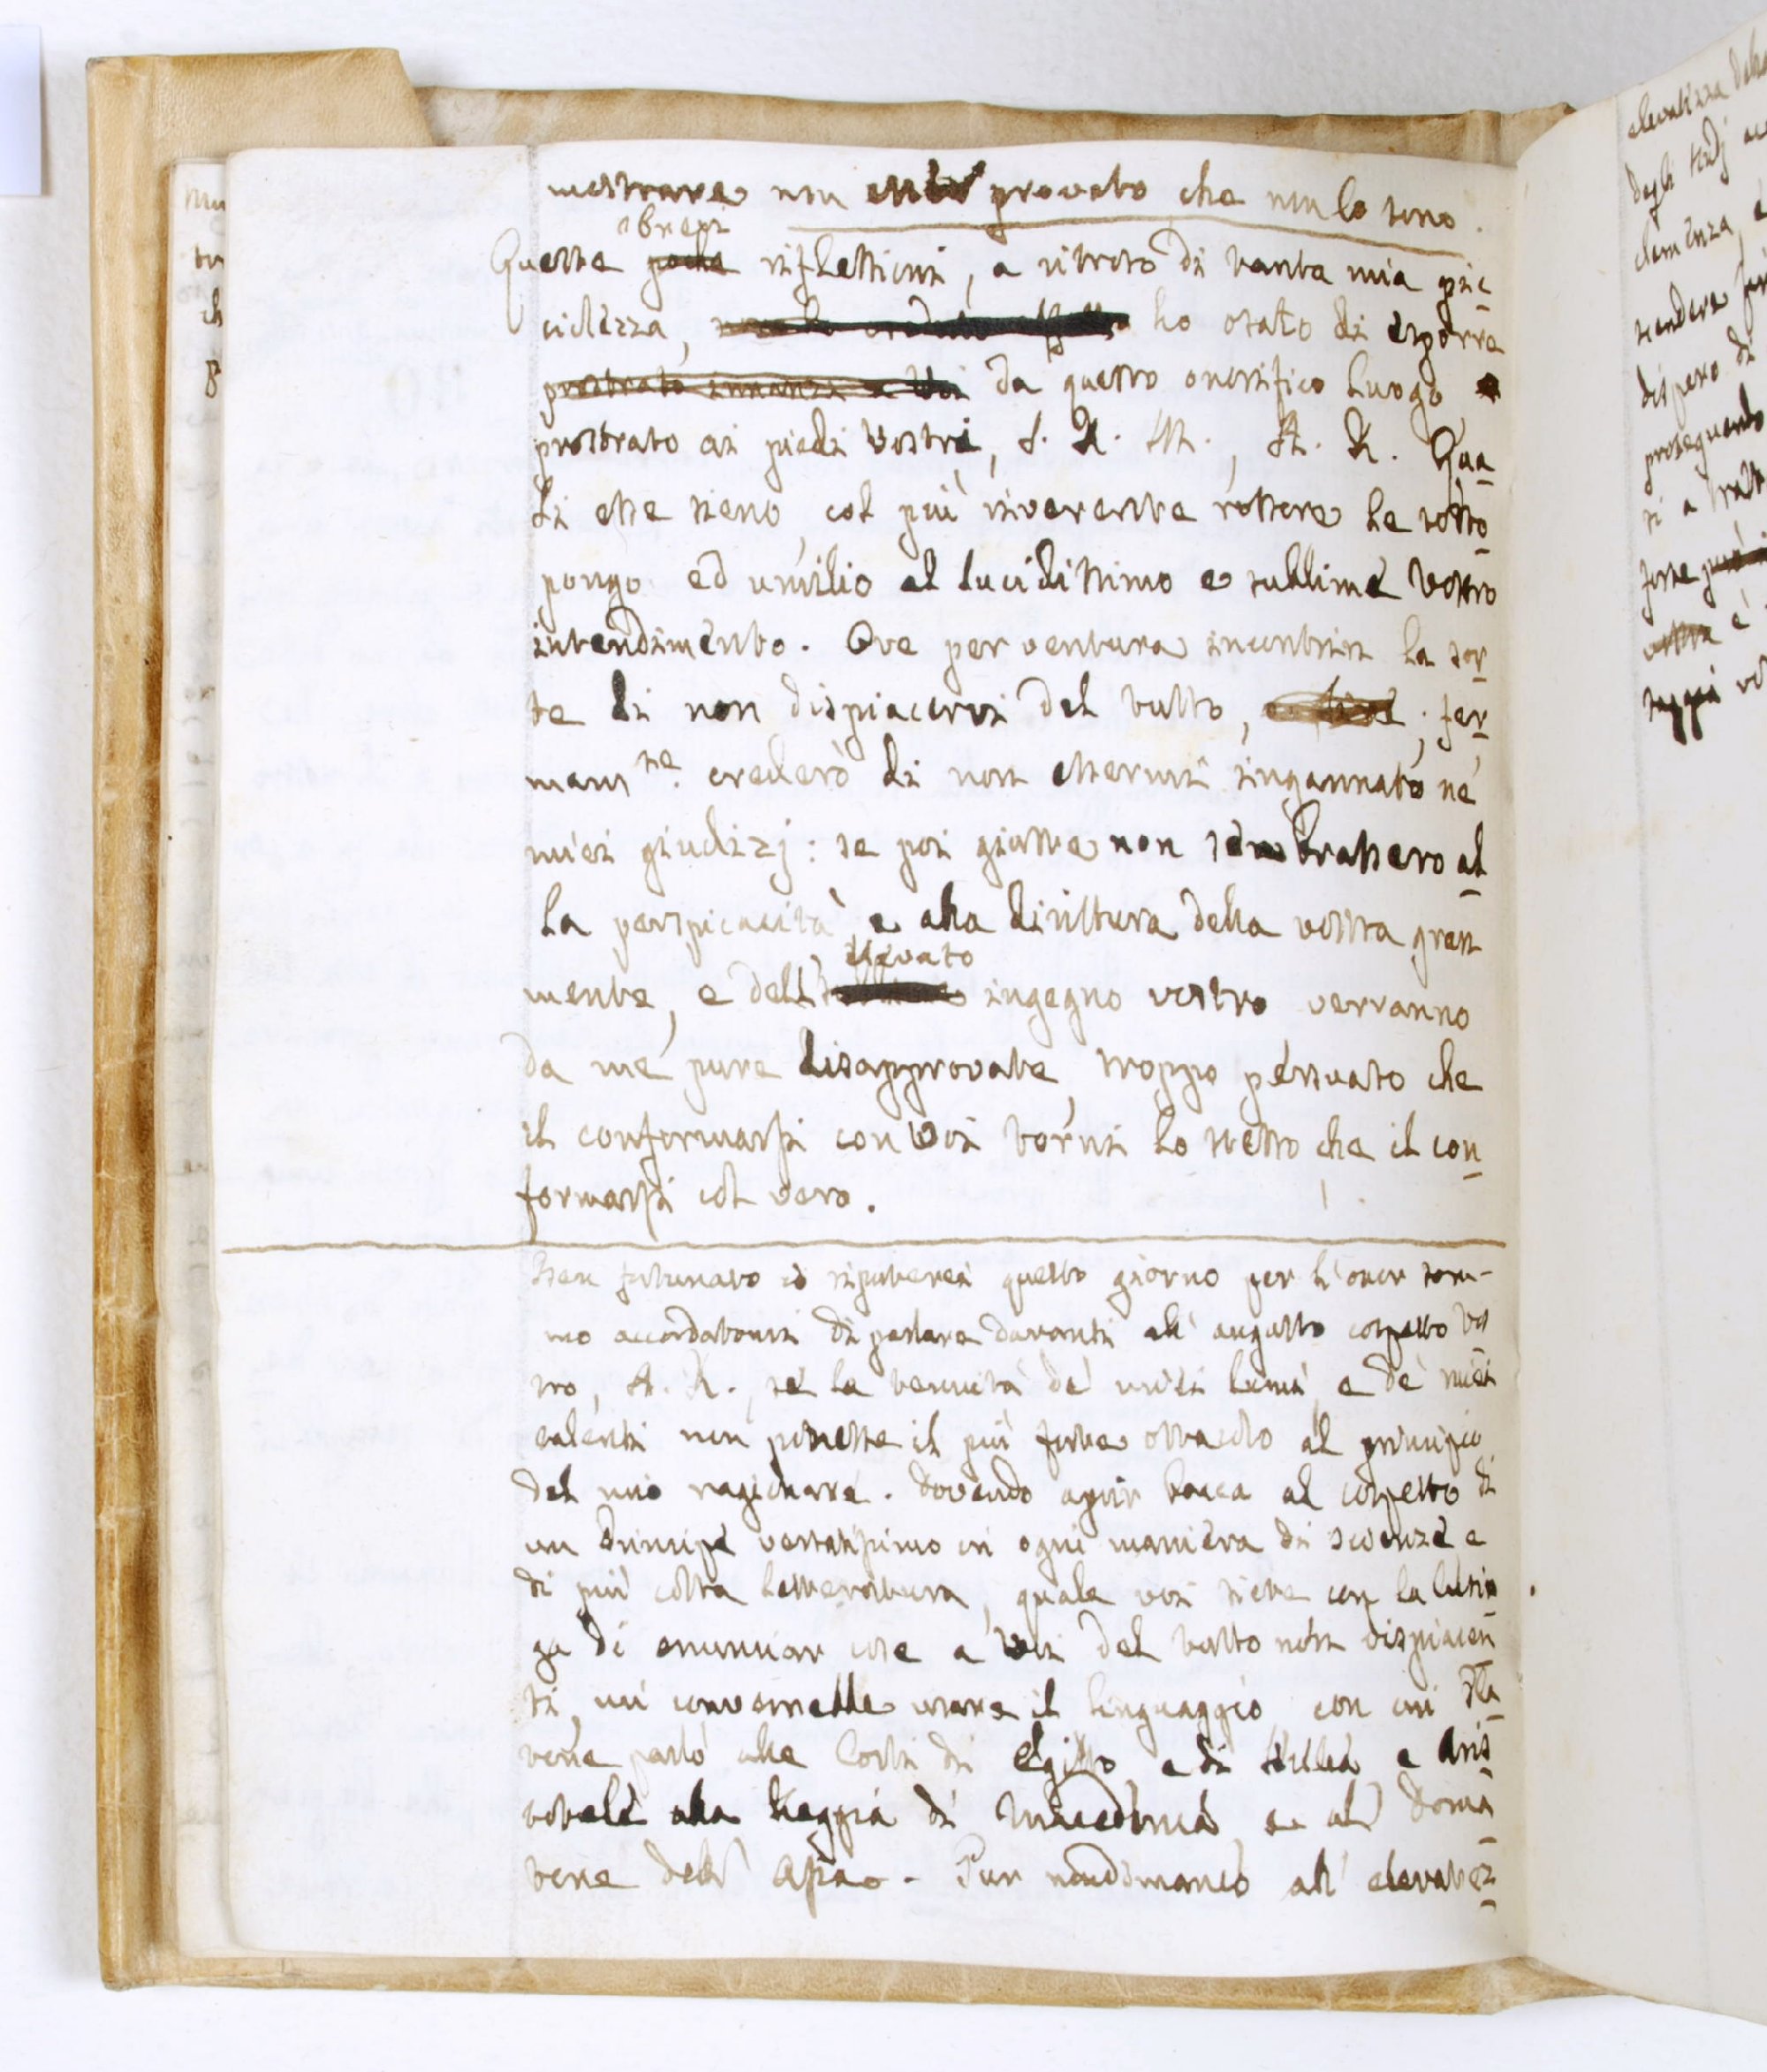 mostrare non provato che non lo sono.
brevi
Queste poche riflessioni, a ritroso di tanta mia pic
ciolezza, ho osato di esporre
prostrato innanzi a Voi da questo onorifico luogo
prostrato ai piedi vostri, S. R. M., A. R. Qua
li esse sieno, col più riverente rossore le sotto
pongo ed umilio al lucidissimo e sublime vostro
intendimento. Ove per ventura incontrin la sor
te di non dispiacervi del tutto, fer
mam.te crederò di non essermi ingannato ne'
miei giudizj: se poi giuste non sembrassero al
la perspicacità e alla dirittura della vostra gran
elevato
mente, e dell' ingegno vostro verranno
da me pure disapprovate, troppo persuaso che
il conformarsi con Voi torni lo stesso che il con
formarsi col vero.
Ben fortunato io riputerei questo giorno per l'onor som-
mo accordatomi di parlare davanti all' augusto cospetto vos
tro, A. R., se la tenuità de' miei lumi, e de' miei
talenti non ponesse il più forte ostacolo al principio
del mio ragionare. Dovendo aprir bocca al cospetto di
un Principe versatissimo in ogni maniera di scienze e
di più colta letteratura, quale voi siete con la lusin
ga di enunciar cose a Voi del tutto non dispiacen
ti, mi converrebbe usare il linguaggio con cui Pla
tone parlò alle Corti di Egitto e di Sicilia e Aris
totele alla Reggia di Macedonia e al Doma
tore dell' Asia. Pur nondimanco all' elevatez
elevatezza
degli studj
clemenza, e
rendere
dispero di
proseguendo
si a
forse
vostra è
saggia